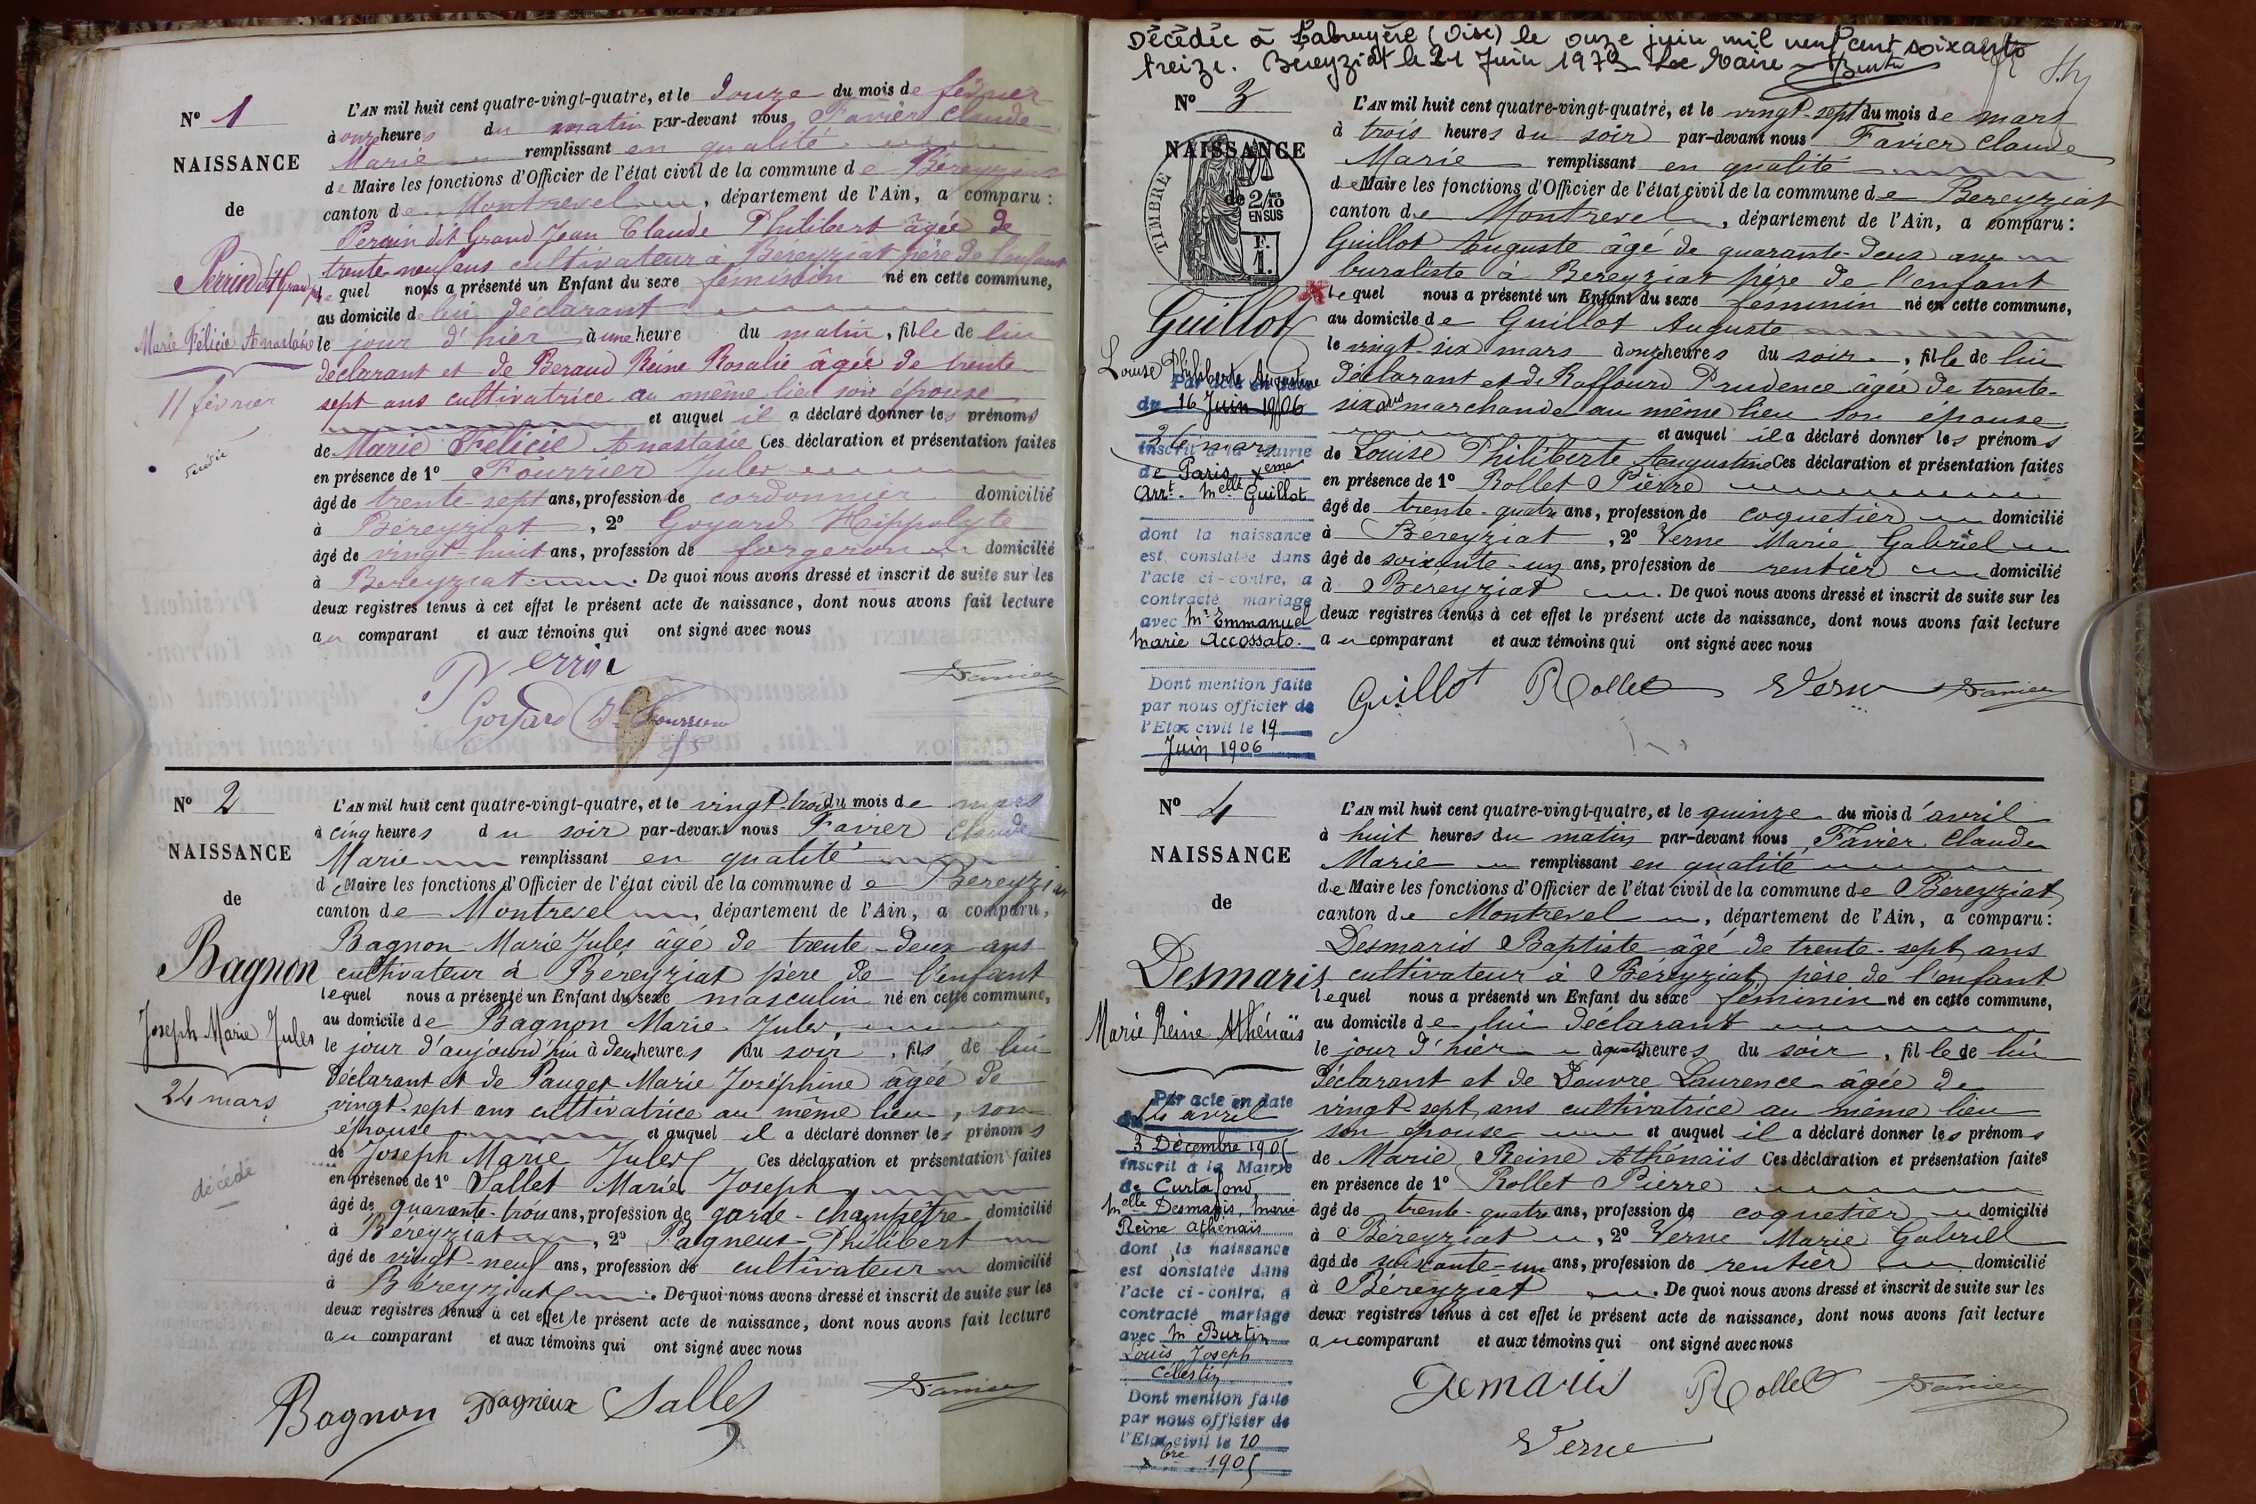 Nº 1
NAISSANCE
de
Perrin dit Grand
Marie Félicie Anastasie
11 février
L'AN mil huit cent quatre-vingt-quatre, et le douze du mois de février
à onze heures du matin par-devant nous Favier Claude
Marie remplissant en qualité
de Maire les fonctions d'Officier de l'état civil de la commune de Béreyziat
canton de Montrevel, département de l'Ain, a comparu :
Perrin dit Grand Jean Claude Philibert âgée de
trente-neuf ans cultivateur à Béreyziat père de l'enfant
lequel nous a présenté un Enfant du sexe féminin né en cette commune,
au domicile de lui déclarant
le jour d'hier à une heure du matin, fille de lui
déclarant et de Beraud Reine Rosalie âgée de trente-
sept ans cultivatrice au même lieu son épouse
et auquel il a déclaré donner les prénoms
de Marie Félicie Anastasie Ces déclaration et présentation faites
en présence de 1º Fourrier Jules
âgé de trente-sept ans, profession de cordonnier domicilié
à Béreyziat, 2º Goyard Hippolyte
âgé de vingt-huit ans, profession de forgeron domicilié
à Bereyziat. De quoi nous avons dressé et inscrit de suite sur les
deux registres tenus à cet effet le présent acte de naissance, dont nous avons fait lecture
au comparant et aux témoins qui ont signé avec nous
Perrin
Favier
Goyard
Nº 2
NAISSANCE
de
Bagnon
Joseph Marie Jules
24 mars
décédé
L'AN mil huit cent quatre-vingt-quatre, et le vingt-trois du mois de mars
à cinq heures du soir par-devant nous Favier Claude
Marie remplissant en qualité
de Maire les fonctions d'Officier de l'état civil de la commune de Bereyziat
canton de Montrevel, département de l'Ain, a comparu,
Bagnon Marie Jules âgé de trente-deux ans
cultivateur à Béreyziat père de l'enfant
lequel nous a présenté un Enfant du sexe masculin né en cette commune,
au domicile de Bagnon Marie Jules,
le jour d'aujourd'hui à deux heures du soir, fils de lui
déclarant et de Pauget Marie Joséphine âgée de
vingt-sept ans cultivatrice au même lieu, son
épouse et auquel il a déclaré donner les prénoms
de Joseph Marie Jules Ces déclaration et présentation faites
en présence de 1º Sallet Marie Joseph
âgé de quarante-trois ans, profession de garde-champêtre domicilié
à Béreyziat, 2º Pagneux Philibert
âgé de vingt-neuf ans, profession de cultivateur domicilié
à Béreyziat. De quoi nous avons dressé et inscrit de suite sur les
deux registres tenus à cet effet le présent acte de naissance, dont nous avons fait lecture
au comparant et aux témoins qui ont signé avec nous
Bagnon Pagneux Sallet Favier
Décédée à Labruyère (Oise) le onze juin mil neuf cent soixante
treize. Bereyziat le 21 Juin 1973 Le Maire
Nº 3
NAISSANCE
de
TIMBRE
2/10 EN SUS
F. 1.
Guillot
Louise Philiberte Augustine
26 mars
Par acte en date
du 16 Juin 1906
inscrit à la Mairie
de Paris Xeme
Arrt. Melle Guillot
dont la naissance
est constatée dans
l'acte ci-contre, a
contracté mariage
avec Mr Emmanuel
Marie Accossato.
Dont mention faite
par nous officier de
l'Etat civil le 19
Juin 1906
L'AN mil huit cent quatre-vingt-quatre, et le vingt-sept du mois de mars
à trois heures du soir par-devant nous Favier Claude
Marie remplissant en qualité
de Maire les fonctions d'Officier de l'état civil de la commune de Bereyziat
canton de Montrevel, département de l'Ain, a comparu :
Guillot Auguste âgé de quarante-deux ans
buraliste à Bereyziat père de l'enfant
lequel nous a présenté un Enfant du sexe féminin né en cette commune,
au domicile de Guillot Auguste
le vingt-six mars à onze heures du soir, fille de lui
déclarant et de Raffourd Prudence âgée de trente-
six ans marchande au même lieu son épouse
et auquel il a déclaré donner les prénoms
de Louise Philiberte Augustine Ces déclaration et présentation faites
en présence de 1º Rollet Pierre
âgé de trente-quatre ans, profession de coquetier domicilié
à Béreyziat, 2º Verne Marie Gabriel
âgé de soixante-un ans, profession de rentier domicilié
à Béreyziat. De quoi nous avons dressé et inscrit de suite sur les
deux registres tenus à cet effet le présent acte de naissance, dont nous avons fait lecture
au comparant et aux témoins qui ont signé avec nous
Guillot Rollet Verne Favier
Nº 4
NAISSANCE
de
Desmaris
Marie Reine Athénaïs
14 avril
Par acte en date
du
3 Décembre 1905
inscrit à la Mairie
de Curtafond
Melle Desmaris, Marie
Reine Athénaïs
dont la naissance
est constatée dans
l'acte ci-contre, a
contracté mariage
avec M Burtin
Louis Joseph
Célestin
Dont mention faite
par nous officier de
l'Etat civil le 10
Xbre 1905
L'AN mil huit cent quatre-vingt-quatre, et le quinze du mois d'avril
à huit heures du matin par-devant nous Favier Claude
Marie remplissant en qualité
de Maire les fonctions d'Officier de l'état civil de la commune de Béreyziat
canton de Montrevel, département de l'Ain, a comparu :
Desmaris Baptiste âgé de trente-sept ans
cultivateur à Béreyziat, père de l'enfant
lequel nous a présenté un Enfant du sexe féminin né en cette commune,
au domicile de lui déclarant
le jour d'hier à quatre heures du soir, fille de lui
déclarant et de Douvre Laurence âgée de
vingt-sept ans cultivatrice au même lieu
son épouse et auquel il a déclaré donner les prénoms
de Marie Reine Athénaïs Ces déclaration et présentation faites
en présence de 1º Rollet Pierre
âgé de trente-quatre ans, profession de coquetier domicilié
à Béreyziat, 2º Verne Marie Gabriel
âgé de soixante-un ans, profession de rentier domicilié
à Béreyziat. De quoi nous avons dressé et inscrit de suite sur les
deux registres tenus à cet effet le présent acte de naissance, dont nous avons fait lecture
au comparant et aux témoins qui ont signé avec nous
Demaris Rollet Favier
Verne